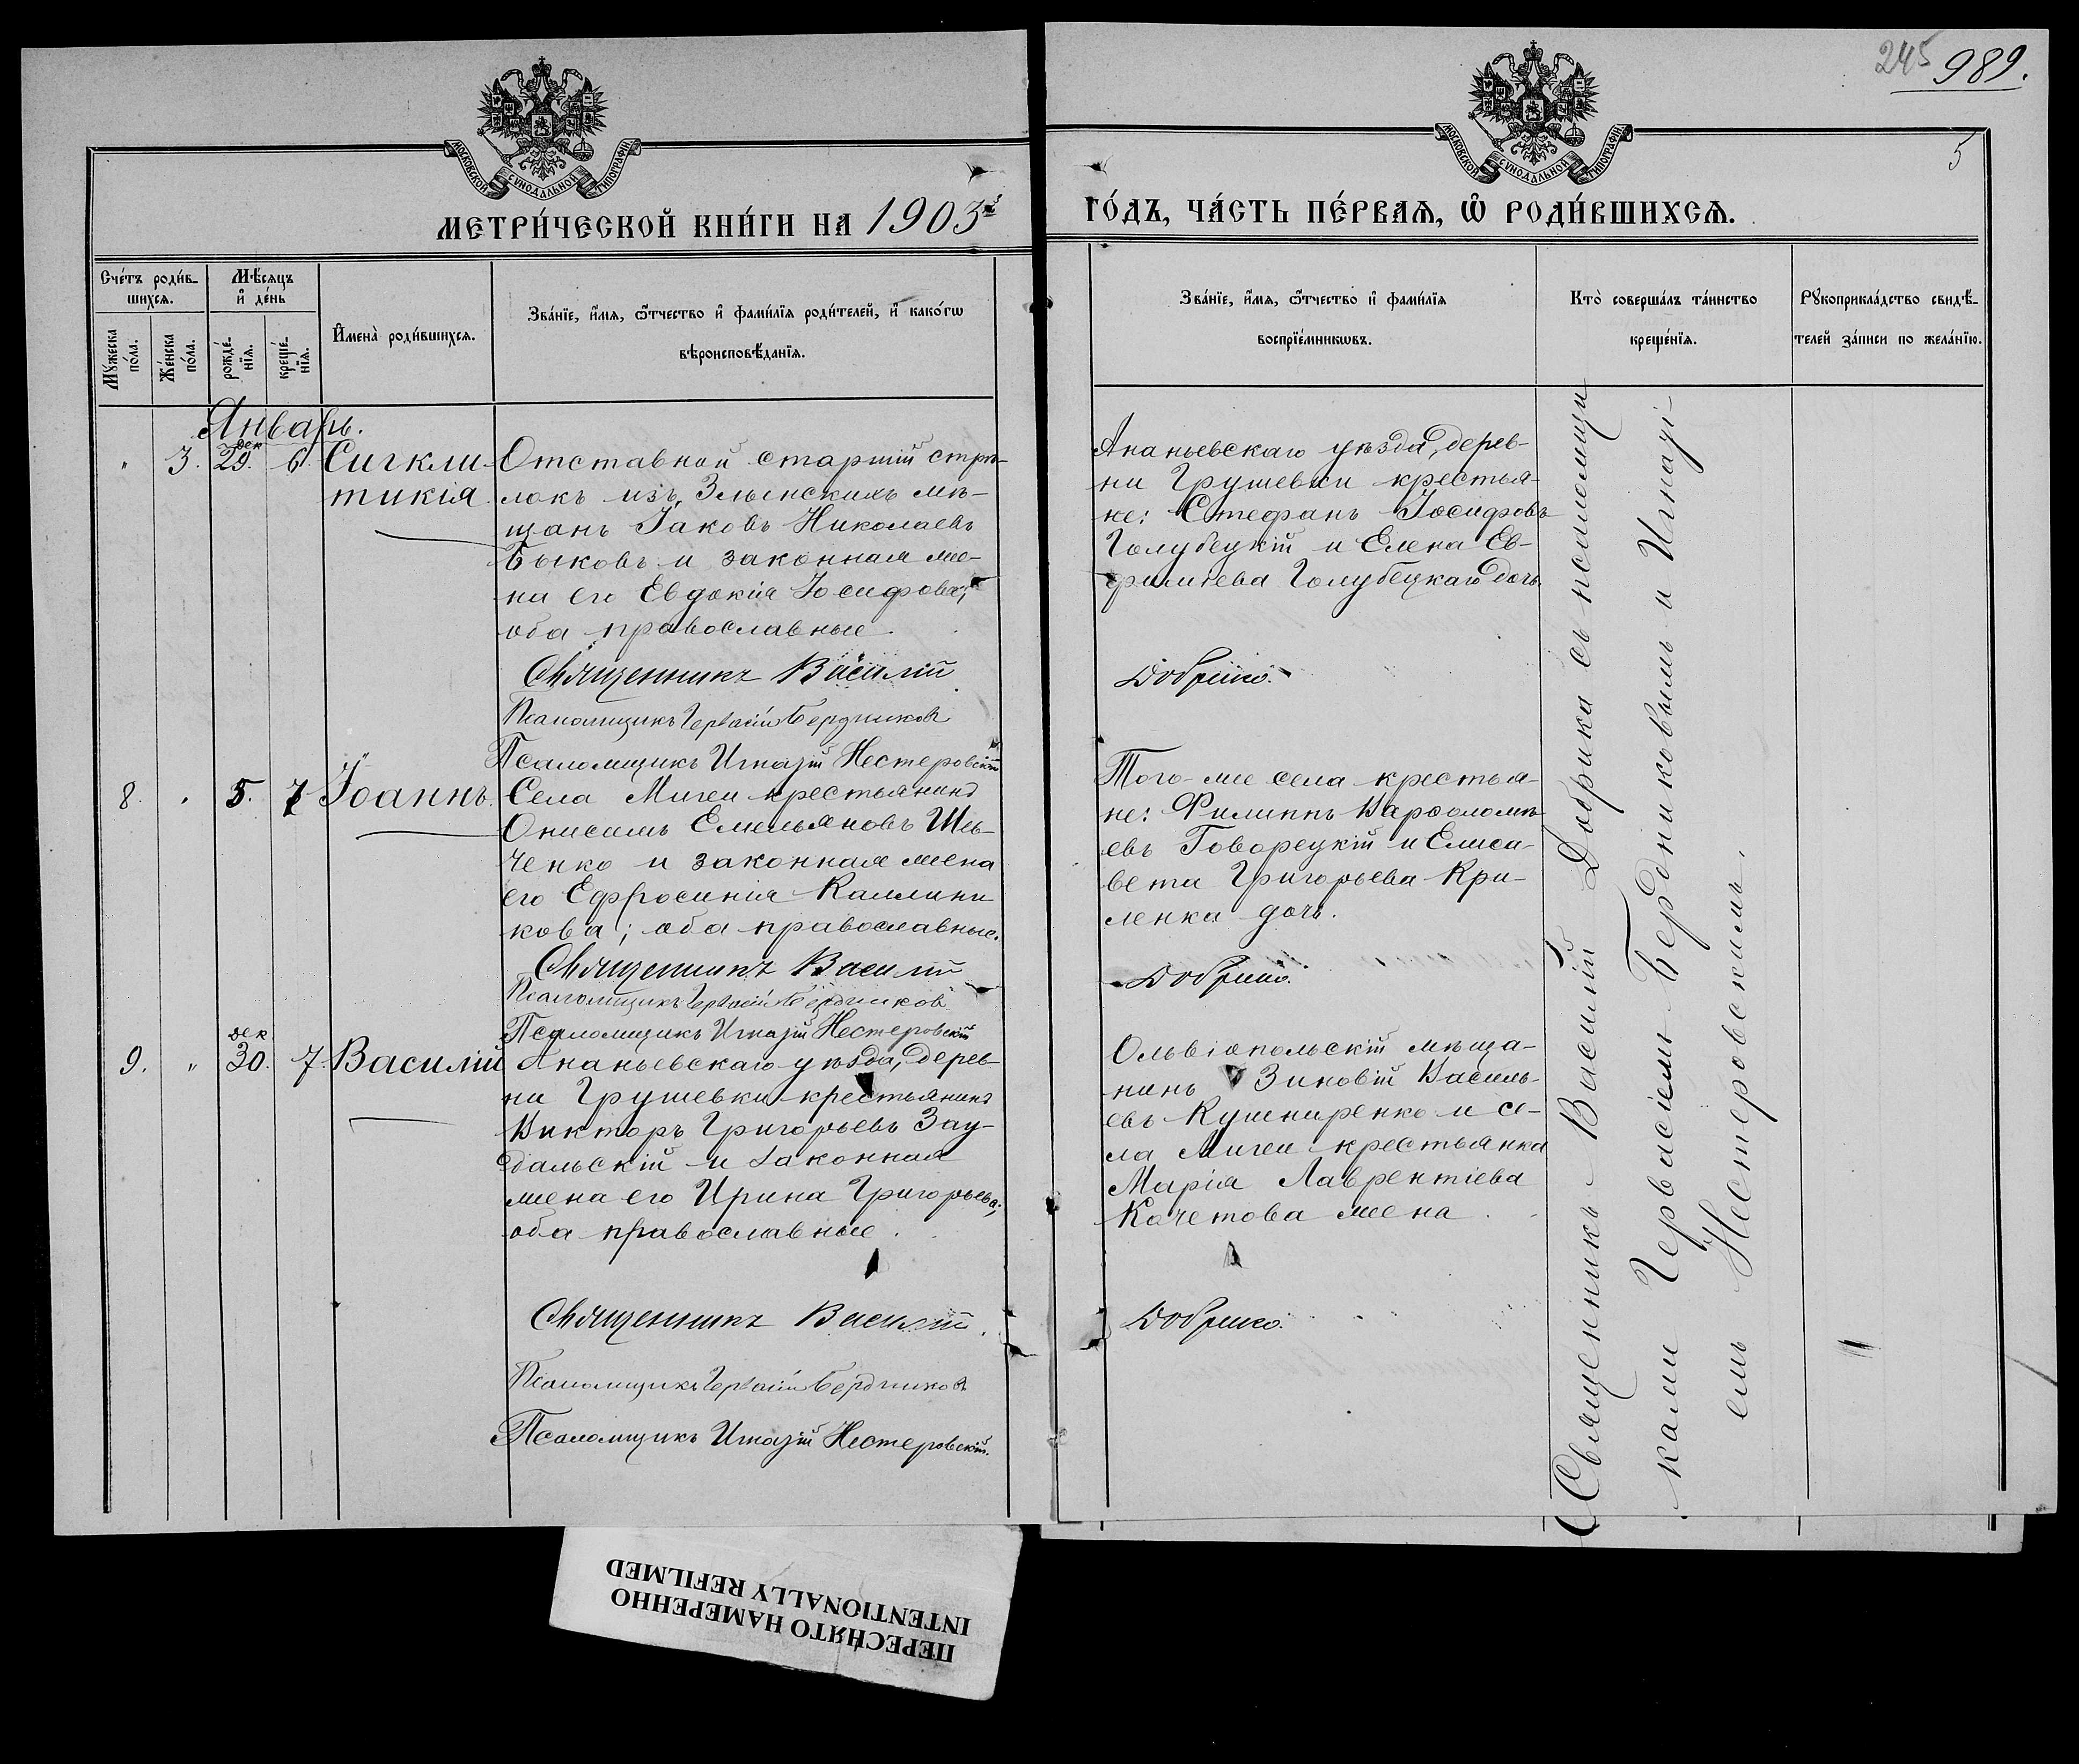 245 989.
5
МОСКОВСКОЙ СѴНОДАЛЬНОЙ ТИПОГРАФІИ
МОСКОВСКОЙ СѴНОДАЛЬНОЙ ТИПОГРАФІИ
МЕТРИ́ЧЕСКОЙ КНИ́ГИ НА 1903й
ГО́ДЪ, ЧА́СТЬ ПЕ́РВАѦ, Ѿ РОДИ́ВШИХСѦ.
Сче́тъ роди́в-
шихсѧ.
Мꙋ́жеска по́ла.
Же́нска по́ла.
Мѣ́сѧцъ
и҆ де́нь
рожде́-
нїѧ.
креще́-
нїѧ.
И҆мена̀ роди́вшихсѧ.
Зва́нїе, и҆́мѧ, ѻ҆́тчество и҆ фами́лїѧ роди́телей, и҆ како́гѡ
вѣроисповѣ́данїѧ.
Зва́нїе, и҆́мѧ, ѻ҆́тчество и҆ фами́лїѧ
воспрїе́мникѡвъ.
Кто̀ соверша́лъ та́инство
креще́нїѧ.
Рꙋкоприкла́дство свидѣ́-
телей за́писи по жела́нїю.
Январь.
" 3. дек 29. 6. Сигкли-
тикія
Отставной старшій стрѣ-
локъ изъ Злынскихъ мѣ-
щанъ Іаковъ Николаевъ
Быковъ и законная же-
на его Евдокія Іосифова;
оба православные.
Священникъ Василій
Псаломщикъ Гервасій Бердниковъ
Псаломщикъ Игнатій Нестеровскій
Ананьевскаго уѣзда, дерев-
ни Грушевки крестья-
не: Стефанъ Іосифовъ
Голубецкій и Елена Ев-
фиміева Голубецкаго дочь
Добрико.
8. " 5. 7 Іоаннъ.
Села Мигеи крестьянинъ
Онисимъ Емельяновъ Шев-
ченко и законная жена
его Ефросинія Каллини-
кова; оба православные.
Священникъ Василій
Псаломщикъ Гервасій Бердниковъ
Псаломщикъ Игнатій Нестеровскій
Того-же села крестья-
не: Филиппъ Варѳоломѣ-
евъ Говорецкій и Елиса-
вета Григорьева Кри-
ленка дочь.
Добрико.
9. " дек 30. 7. Василій
Ананьевскаго уѣзда, дерев-
ни Грушевки крестьянинъ
Викторъ Григорьевъ Зау-
дальскій и законная
жена его Ирина Григорьева;
оба православные.
Священникъ Василій
Псаломщикъ Гервасій Бердниковъ
Псаломщикъ Игнатій Нестеровскій.
Ольвіопольскій мѣща-
нинъ Зиновій Василь-
евъ Кушниренко и се-
ла Мигеи крестьянка
Марія Лаврентіева
Кочетова жена.
Добрико.
Священникъ Василій Добрика съ псаломщи
ками Гервасіемъ Бердниковымъ и Игнаті-
емъ Нестеровскимъ.
ПЕРЕСНЯТО НАМЕРЕННО
INTENTIONALLY REFILMED